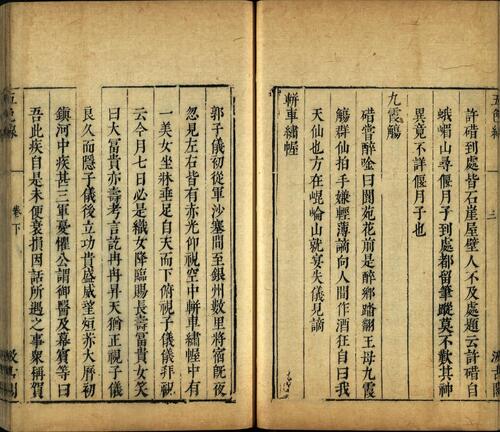 許碏到處皆石崖屋壁人不及處題云許碏自
峨嵋山尋偃月子到處都留筆蹤莫不歎其神
異竟不詳偃月子也
九霞觴
碏嘗醉唫曰閬苑花前是醉鄉踏翻王母九霞
觴群仙拍手嫌輕薄謫向人間作酒狂自曰我
天仙也方在崐崘山就宴失儀見謫
軿車繡幄
郭子儀初從軍沙塞間至銀州數里將宿旣夜
忽見左右皆有赤光仰視空中軿車繡幄中有
一美女坐牀垂足自天而下俯視子儀儀拜祝
云今月七日必是織女降臨賜長壽富貴女笑
曰大富貴亦壽考言訖冉冉昇天猶正視子儀
良久而隱子儀後立功貴盛威望烜赤大曆初
鎮河中疾甚三軍憂懼公謂御醫及幕賓等曰
吾此疾自是未便衰損因話所遇之事衆稱賀
卷下